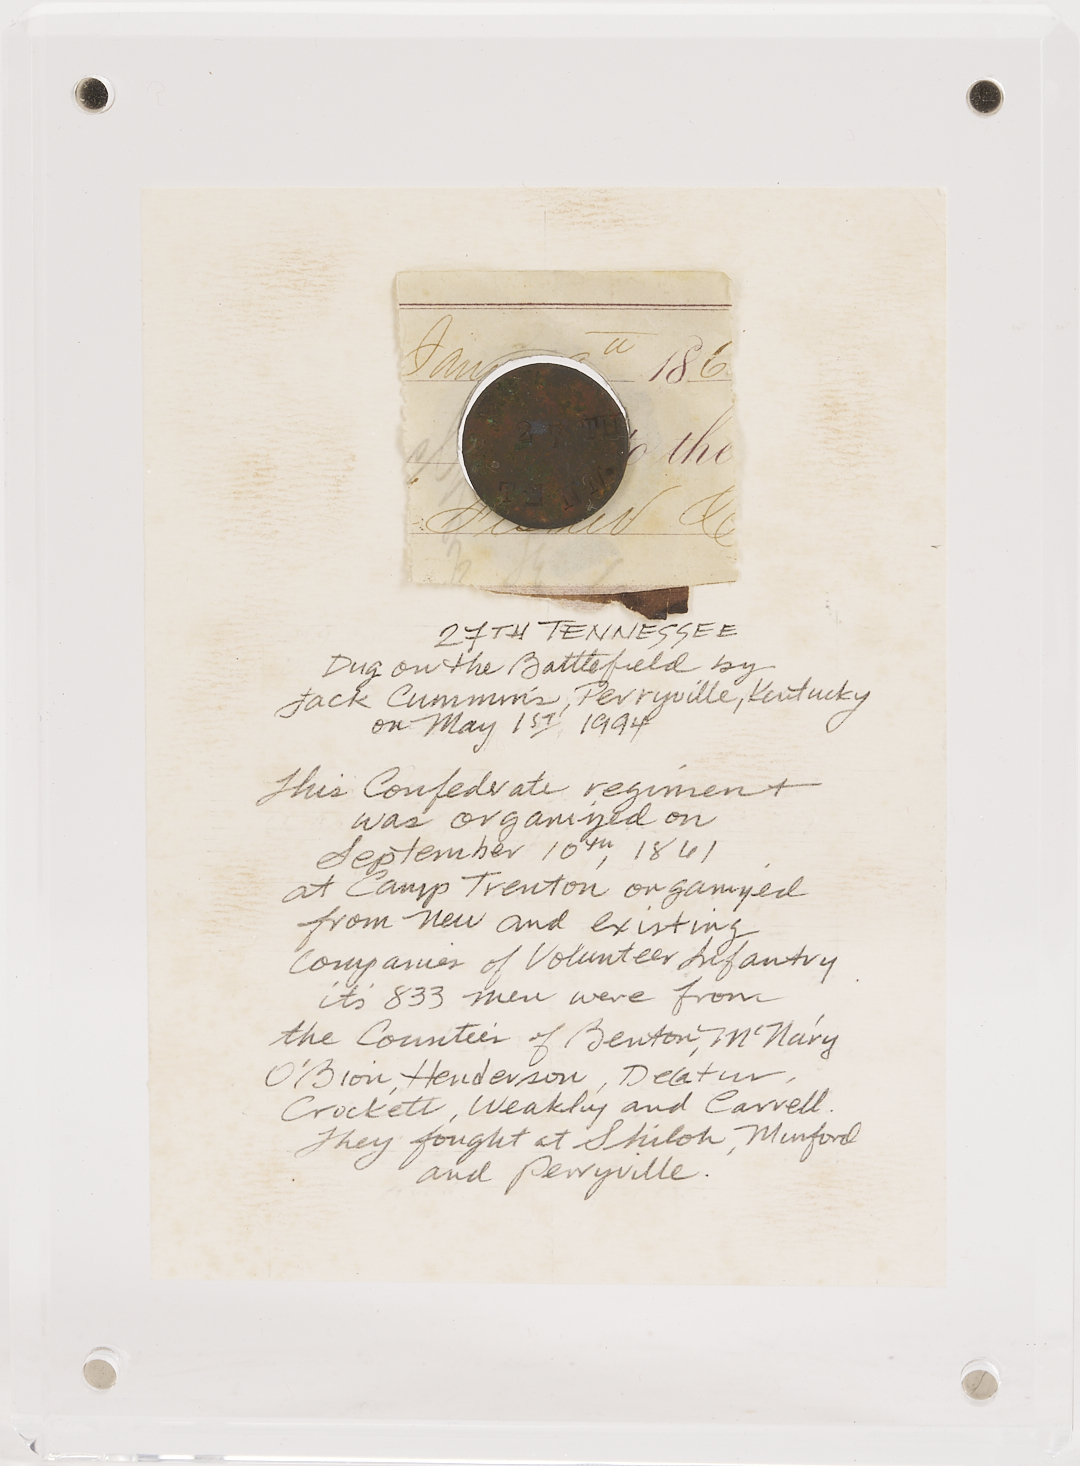 186
the
27TH TENNESSEE
Dug on the Battlefield by
Jack Cummins, Perryville, Kentucky
on May 1ST, 1994
This Confederate regiment
was organized on
September 10th, 1861
at Camp Trenton organized
from new and existing
Companies of Volunteer Infantry
it's 833 men were from
the Counties of Benton, McNary
O'Bion, Henderson, Decatur,
Crockett, Weakley and Carrell.
They fought at Shiloh, Munford
and Perryville.